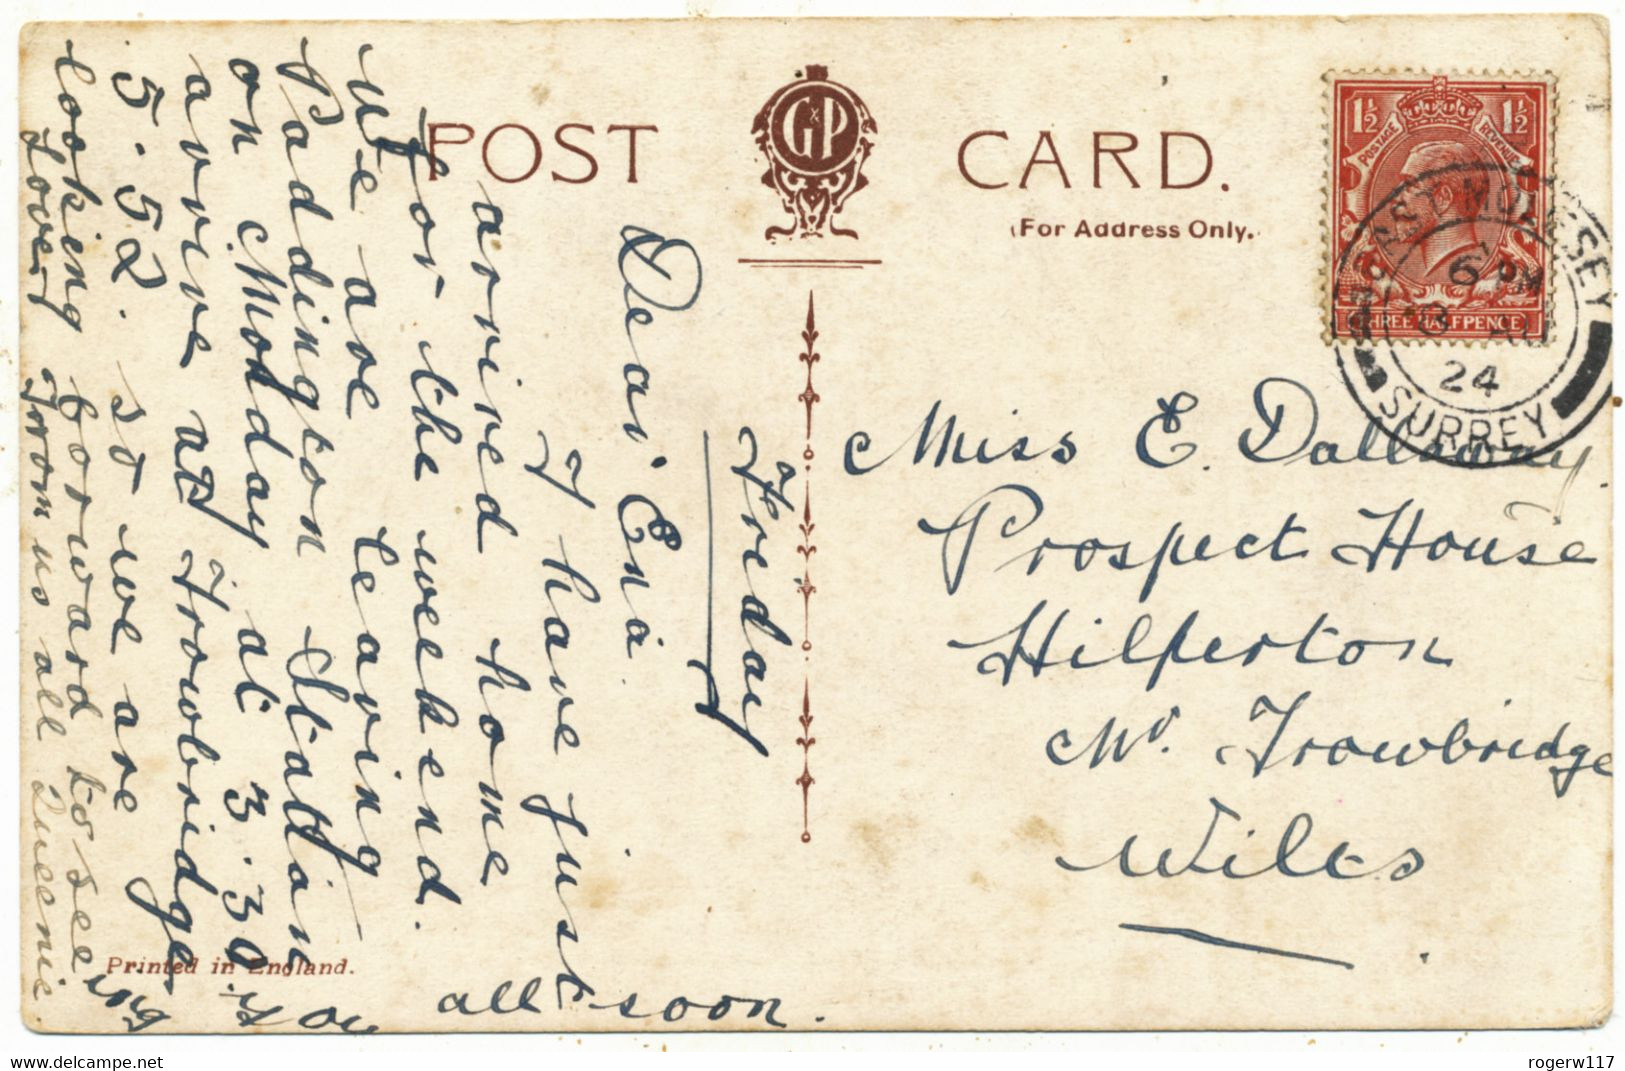 POST CARD.
G & P
(For Address Only.
1½ 1½
POSTAGE REVENUE
THREE HALFPENCE
EAST MOLESEY
6 PM
24
SURREY
Friday
Dear Ena
I have just
arrived home
for the weekend.
We are leaving
Paddington Station
on Monday at 3.30
arrive at Trowbridge
5.52. so we are
looking forward to seeing
you all soon.
Love from us all Queenie
Miss E. Dallaway
Prospect House
Hilperton
Nr. Trowbridge
Wilts
Printed in England.
rogerw117